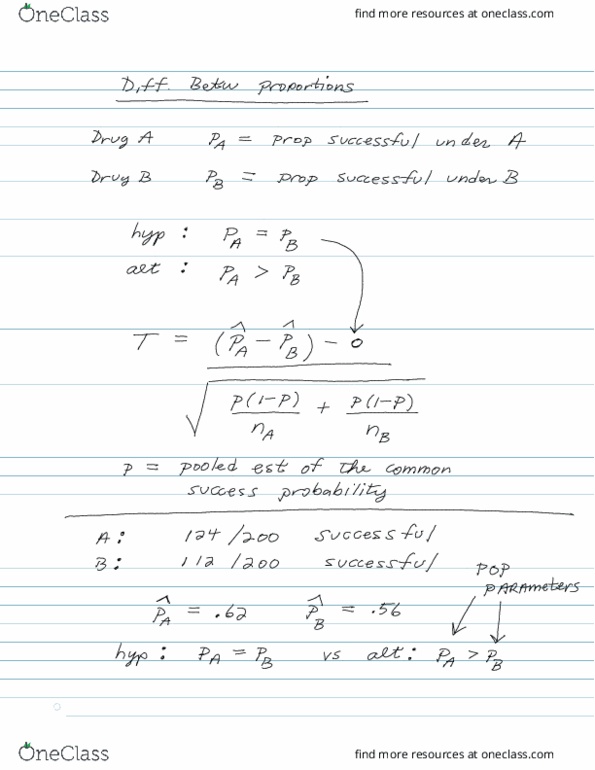 OneClass find more resources at oneclass.com
Diff. Betw proportions
Drug A P_A = prop successful under A
Drug B P_B = prop successful under B
hyp : P_A = P_B
alt : P_A > P_B
T = (P̂_A − P̂_B) − 0
√ P(1−P)/n_A + P(1−P)/n_B
p = pooled est of the common
success probability
A: 124/200 successful
B: 112/200 successful
POP
PARAMETERS
P̂_A = .62 P̂_B = .56
hyp : P_A = P_B vs alt: P_A > P_B
OneClass find more resources at oneclass.com